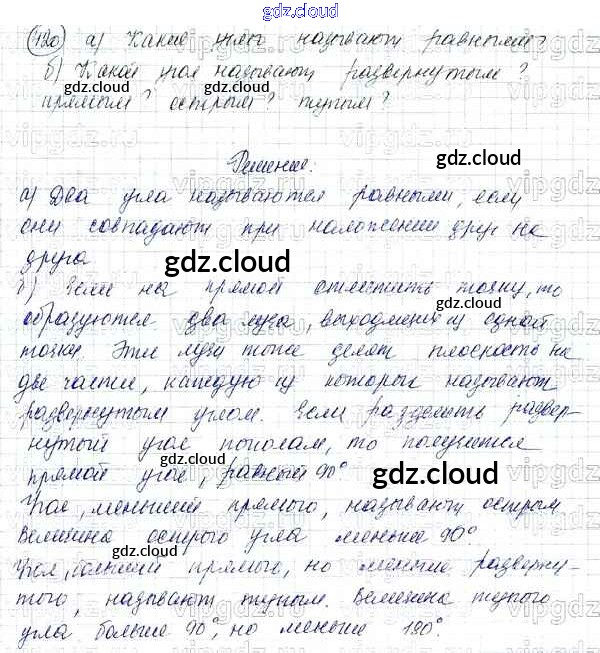 gdz.cloud
120 а) Какие углы называют равными?
б) Какой угол называют развернутым?
gdz.cloud gdz.cloud
прямым? острым? тупым?
Решение:
gdz.cloud
а) Два угла называются равными, если
они совпадают при наложении друг на
друга
gdz.cloud
gdz.cloud
б) Если на прямой отметить точку, то
образуются два луча, выходящие из одной
точки. Эти лучи тоже делят плоскость на
две части, каждую из которых называют
развернутым углом. Если разделить развер-
нутый угол пополам, то получится
прямой угол, равный 90°
gdz.cloud
gdz.cloud
Угол, меньший прямого, называют острым
Величина острого угла меньше 90°
gdz.cloud
gdz.cloud
Угол, больший прямого, но меньше разверну-
того, называют тупым. Величина тупого
угла больше 90°, но меньше 180°.
gdz.cloud